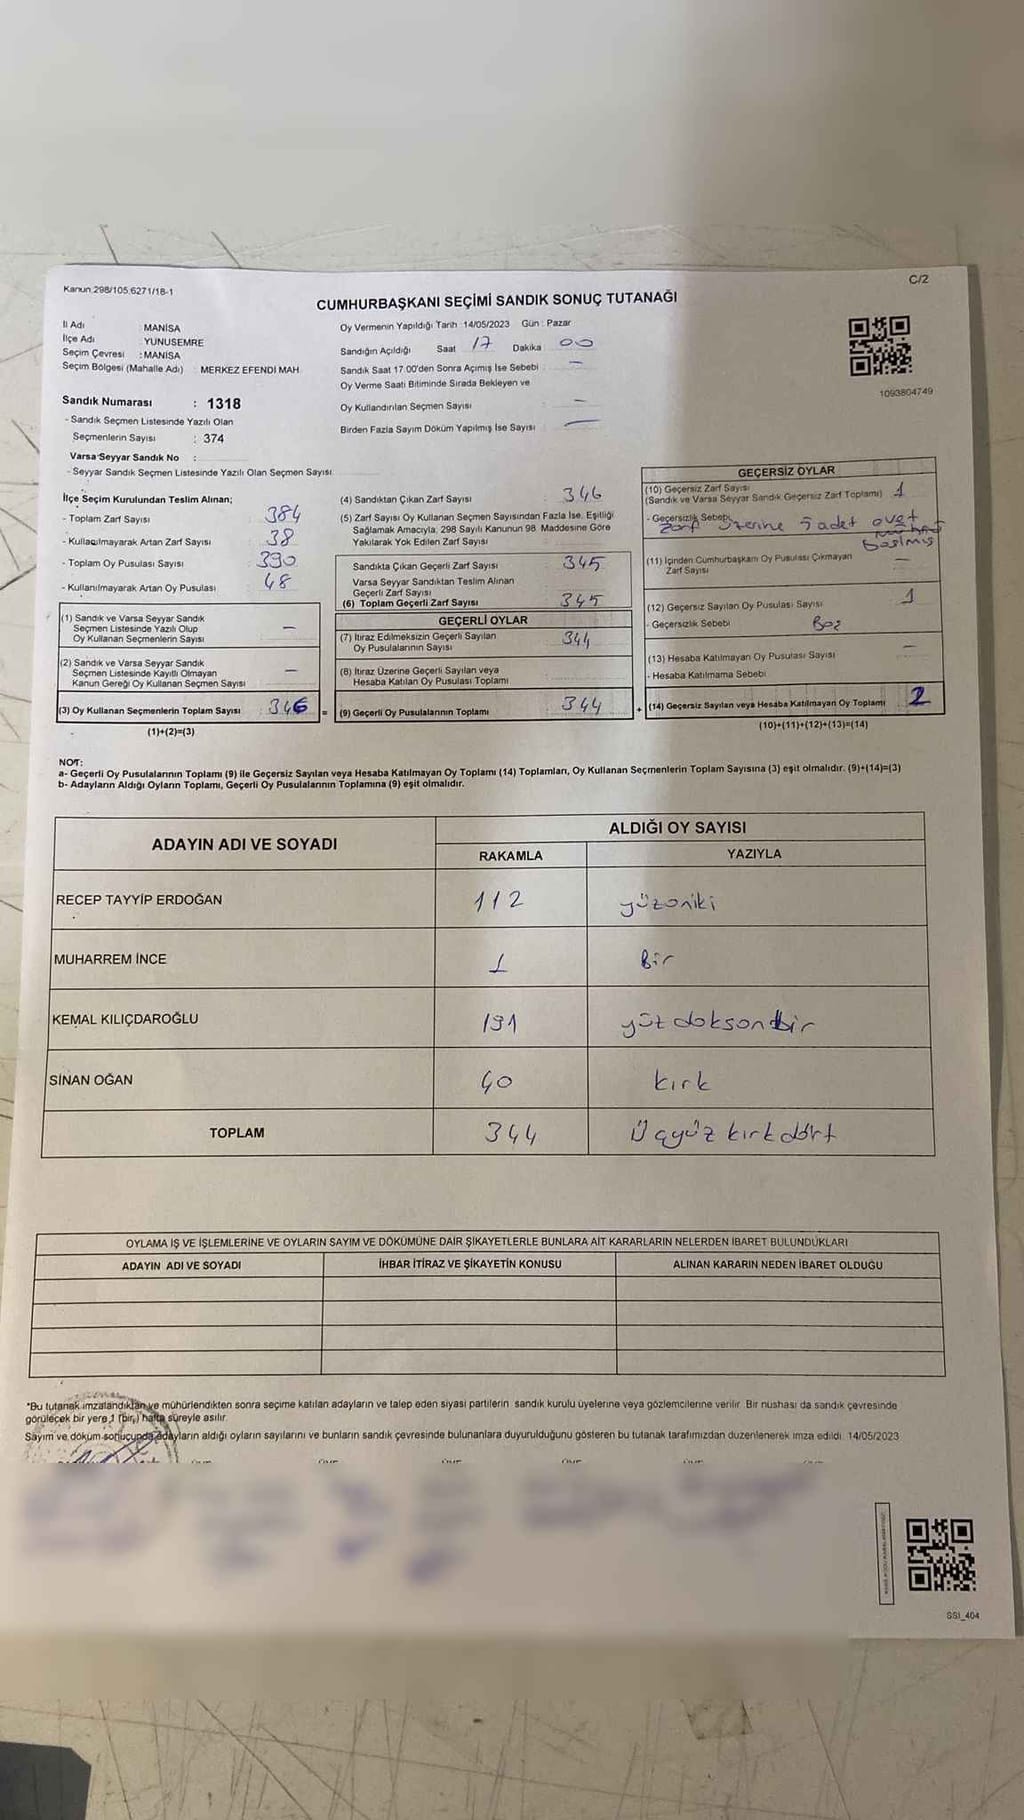 Kanun:298/105,6271/18-1
C/2
CUMHURBAŞKANI SEÇİMİ SANDIK SONUÇ TUTANAĞI
İl Adı : MANİSA
İlçe Adı : YUNUSEMRE
Seçim Çevresi : MANİSA
Seçim Bölgesi (Mahalle Adı) : MERKEZ EFENDİ MAH
Sandık Numarası : 1318
- Sandık Seçmen Listesinde Yazılı Olan
Seçmenlerin Sayısı : 374
Varsa Seyyar Sandık No :
- Seyyar Sandık Seçmen Listesinde Yazılı Olan Seçmen Sayısı
Oy Vermenin Yapıldığı Tarih 14/05/2023 Gün : Pazar
Sandığın Açıldığı Saat 17 Dakika 00
Sandık Saat 17.00'den Sonra Açımış İse Sebebi —
Oy Verme Saati Bitiminde Sırada Bekleyen ve
Oy Kullandırılan Seçmen Sayısı —
Birden Fazla Sayım Döküm Yapılmış İse Sayısı —
1093804749
İlçe Seçim Kurulundan Teslim Alınan;
- Toplam Zarf Sayısı 384
- Kullanılmayarak Artan Zarf Sayısı 38
- Toplam Oy Pusulası Sayısı 390
- Kullanılmayarak Artan Oy Pusulası 48
(1) Sandık ve Varsa Seyyar Sandık
Seçmen Listesinde Yazılı Olup
Oy Kullanan Seçmenlerin Sayısı —
(2) Sandık ve Varsa Seyyar Sandık
Seçmen Listesinde Kayıtlı Olmayan
Kanun Gereği Oy Kullanan Seçmen Sayısı —
(3) Oy Kullanan Seçmenlerin Toplam Sayısı 346
(1)+(2)=(3)
(4) Sandıktan Çıkan Zarf Sayısı 346
(5) Zarf Sayısı Oy Kullanan Seçmen Sayısından Fazla İse, Eşitliği
Sağlamak Amacıyla, 298 Sayılı Kanunun 98. Maddesine Göre
Yakılarak Yok Edilen Zarf Sayısı
Sandıkta Çıkan Geçerli Zarf Sayısı 345
Varsa Seyyar Sandıktan Teslim Alınan
Geçerli Zarf Sayısı
(6) Toplam Geçerli Zarf Sayısı 345
GEÇERLİ OYLAR
(7) İtiraz Edilmeksizin Geçerli Sayılan
Oy Pusulalarının Sayısı 344
(8) İtiraz Üzerine Geçerli Sayılan veya
Hesaba Katılan Oy Pusulası Toplamı
= (9) Geçerli Oy Pusulalarının Toplamı 344
GEÇERSİZ OYLAR
(10) Geçersiz Zarf Sayısı
(Sandık ve Varsa Seyyar Sandık Geçersiz Zarf Toplamı) 1
- Geçersizlik Sebebi
Zarf üzerine 5 adet evet
basılmış
(11) İçinden Cumhurbaşkanı Oy Pusulası Çıkmayan
Zarf Sayısı —
(12) Geçersiz Sayılan Oy Pusulası Sayısı 1
- Geçersizlik Sebebi Boş
(13) Hesaba Katılmayan Oy Pusulası Sayısı —
- Hesaba Katılmama Sebebi
+ (14) Geçersiz Sayılan veya Hesaba Katılmayan Oy Toplamı 2
(10)+(11)+(12)+(13)=(14)
NOT:
a- Geçerli Oy Pusulalarının Toplamı (9) ile Geçersiz Sayılan veya Hesaba Katılmayan Oy Toplamı (14) Toplamları, Oy Kullanan Seçmenlerin Toplam Sayısına (3) eşit olmalıdır. (9)+(14)=(3)
b- Adayların Aldığı Oyların Toplamı, Geçerli Oy Pusulalarının Toplamına (9) eşit olmalıdır.
ADAYIN ADI VE SOYADI ALDIĞI OY SAYISI
RAKAMLA YAZIYLA
RECEP TAYYİP ERDOĞAN 112 yüzoniki
MUHARREM İNCE 1 Bir
KEMAL KILIÇDAROĞLU 191 yüz doksan bir
SİNAN OĞAN 40 kırk
TOPLAM 344 Üçyüz kırkdört
OYLAMA İŞ VE İŞLEMLERİNE VE OYLARIN SAYIM VE DÖKÜMÜNE DAİR ŞİKAYETLERLE BUNLARA AİT KARARLARIN NELERDEN İBARET BULUNDUKLARI
ADAYIN ADI VE SOYADI İHBAR İTİRAZ VE ŞİKAYETİN KONUSU ALINAN KARARIN NEDEN İBARET OLDUĞU
*Bu tutanak imzalandıktan ve mühürlendikten sonra seçime katılan adayların ve talep eden siyasi partilerin sandık kurulu üyelerine veya gözlemcilerine verilir. Bir nüshası da sandık çevresinde
görülecek bir yere 1 (bir) hafta süreyle asılır.
Sayım ve döküm sonucunda adayların aldığı oyların sayılarını ve bunların sandık çevresinde bulunanlara duyurulduğunu gösteren bu tutanak tarafımızdan düzenlenerek imza edildi. 14/05/2023
SSI_404